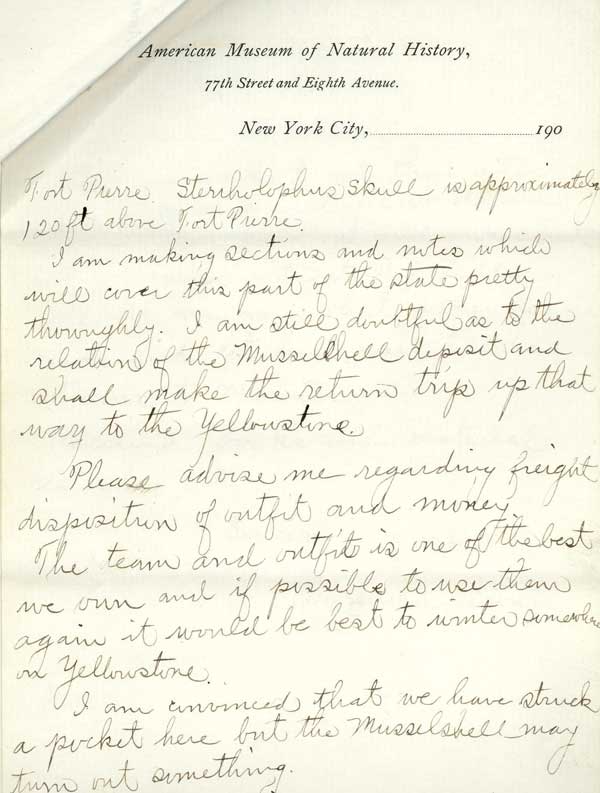 American Museum of Natural History,
77th Street and Eighth Avenue.
New York City, 190
Fort Pierre. Sterrholophus skull is approximately
120 ft above Fort Pierre.
I am making sections and notes which
will cover this part of the state pretty
thoroughly. I am still doubtful as to the
relation of the Musselshell deposit and
shall make the return trip up that
way to the Yellowstone.
Please advise me regarding freight
disposition of outfit and money.
The team and outfit is one of the best
we own and if possible to use them
again it would be best to winter somewhere
on Yellowstone.
I am convinced that we have struck
a pocket here but the Musselshell may
turn out something.